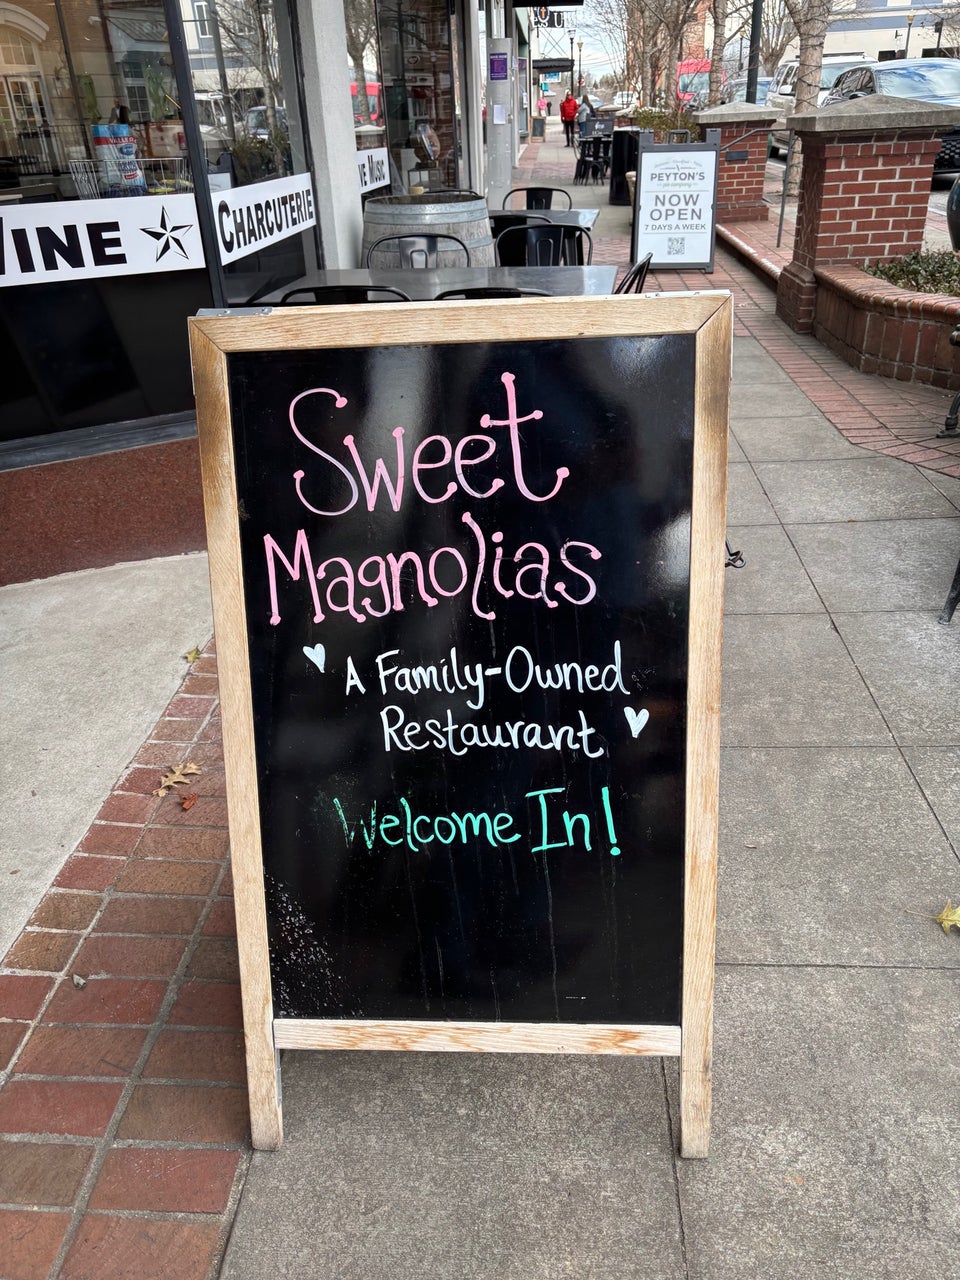 WINE
CHARCUTERIE
VE MUSIC
PEYTON'S
pie company
NOW
OPEN
7 DAYS A WEEK
Sweet
Magnolias
A Family-Owned
Restaurant
Welcome In!